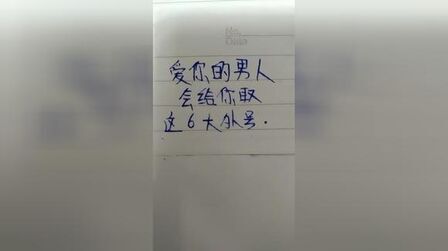 No.
Date
爱你的男人
会给你取
这6大外号.